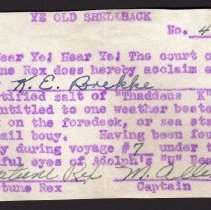 YE OLD SHELLBACK
No. 4
Hear Ye! Near Ye! The court o
une Rex does hereby acclaim
K. E. Brekke
rtified salt of "Thaddeus K
entitled to one weather beate
on the foredeck, or sea sta
ail bouy. Having been foun
ty during voyage #7 under t
ful eyes of Adolph's "U" Boa
ptune Rex M. Alle
tune Rex Captain